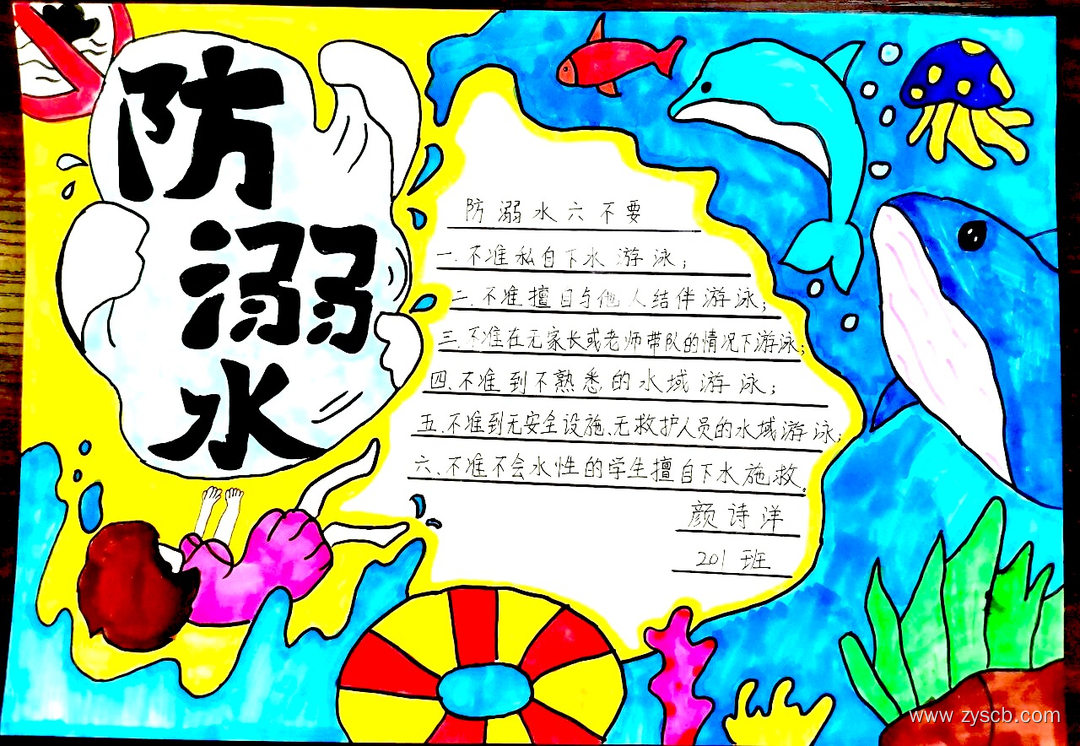 防
溺
水
防溺水六不要
一.不准私自下水游泳;
二.不准擅自与他人结伴游泳;
三.不准在无家长或老师带队的情况下游泳;
四.不准到不熟悉的水域游泳;
五.不准到无安全设施、无救护人员的水域游泳;
六、不准不会水性的学生擅自下水施救。
颜诗洋
201班
www.zyscb.com